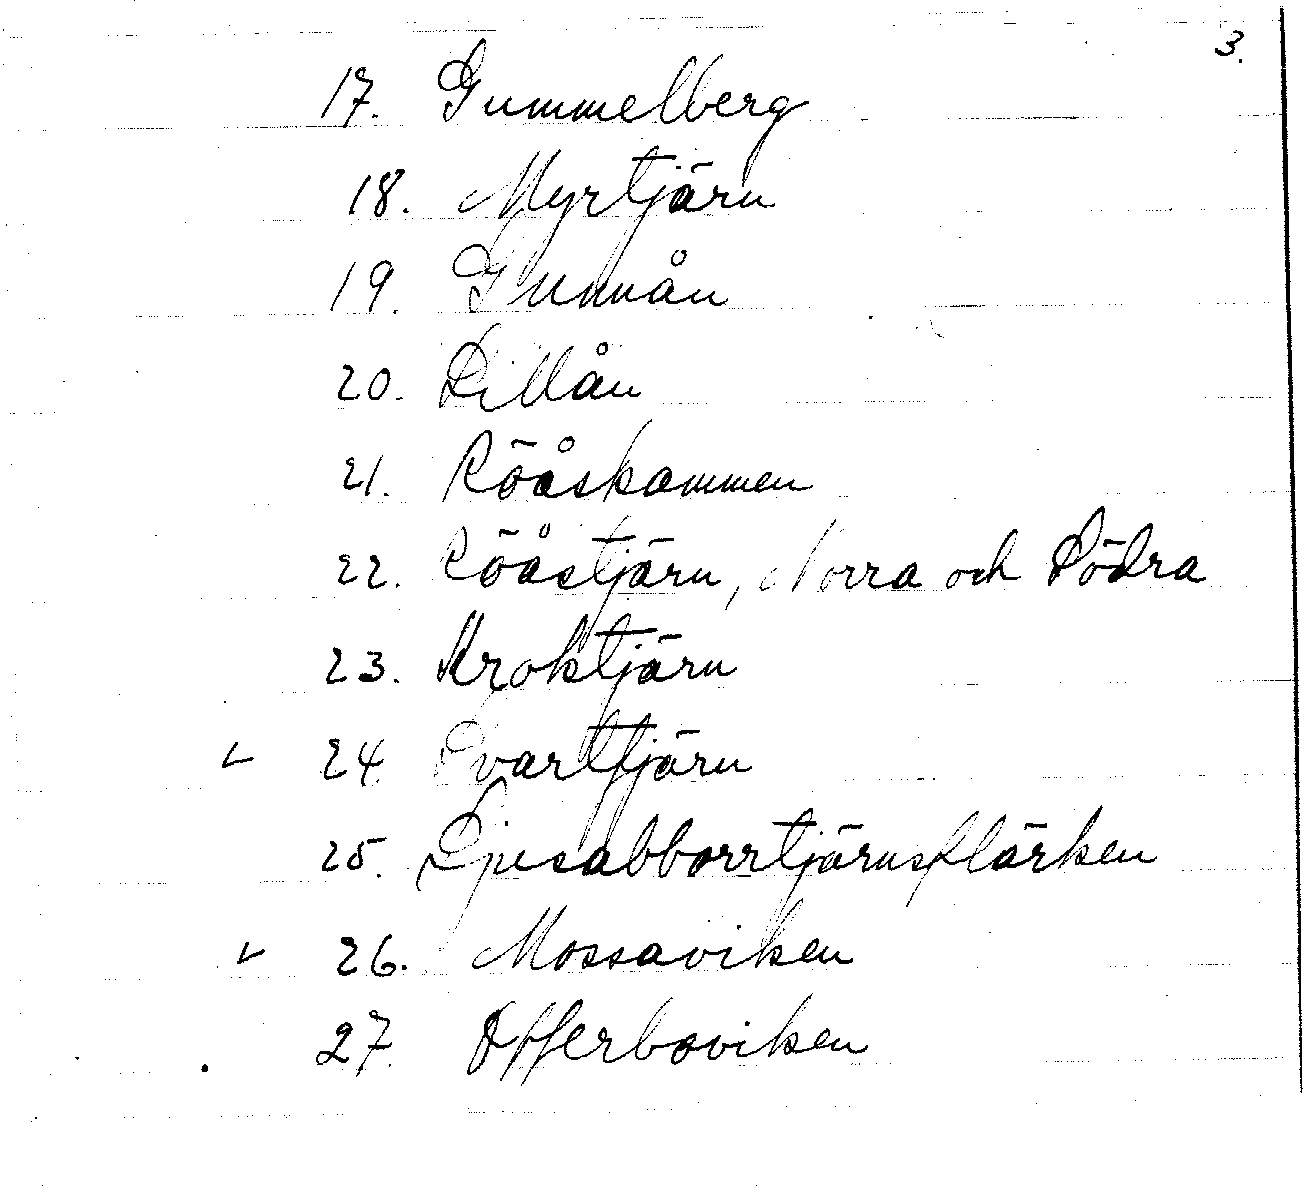 3.
17. Gummelberg
18. Myrtjärn
19. Gunnån
20. Lillån
21. Rööåskammen
22. Rööåstjärn, Norra och Södra
23. Kroktjärn
24 Svarttjärn
25. Ljusabborrtjärnsflärken
26. Mossaviken
27. Offerboviken